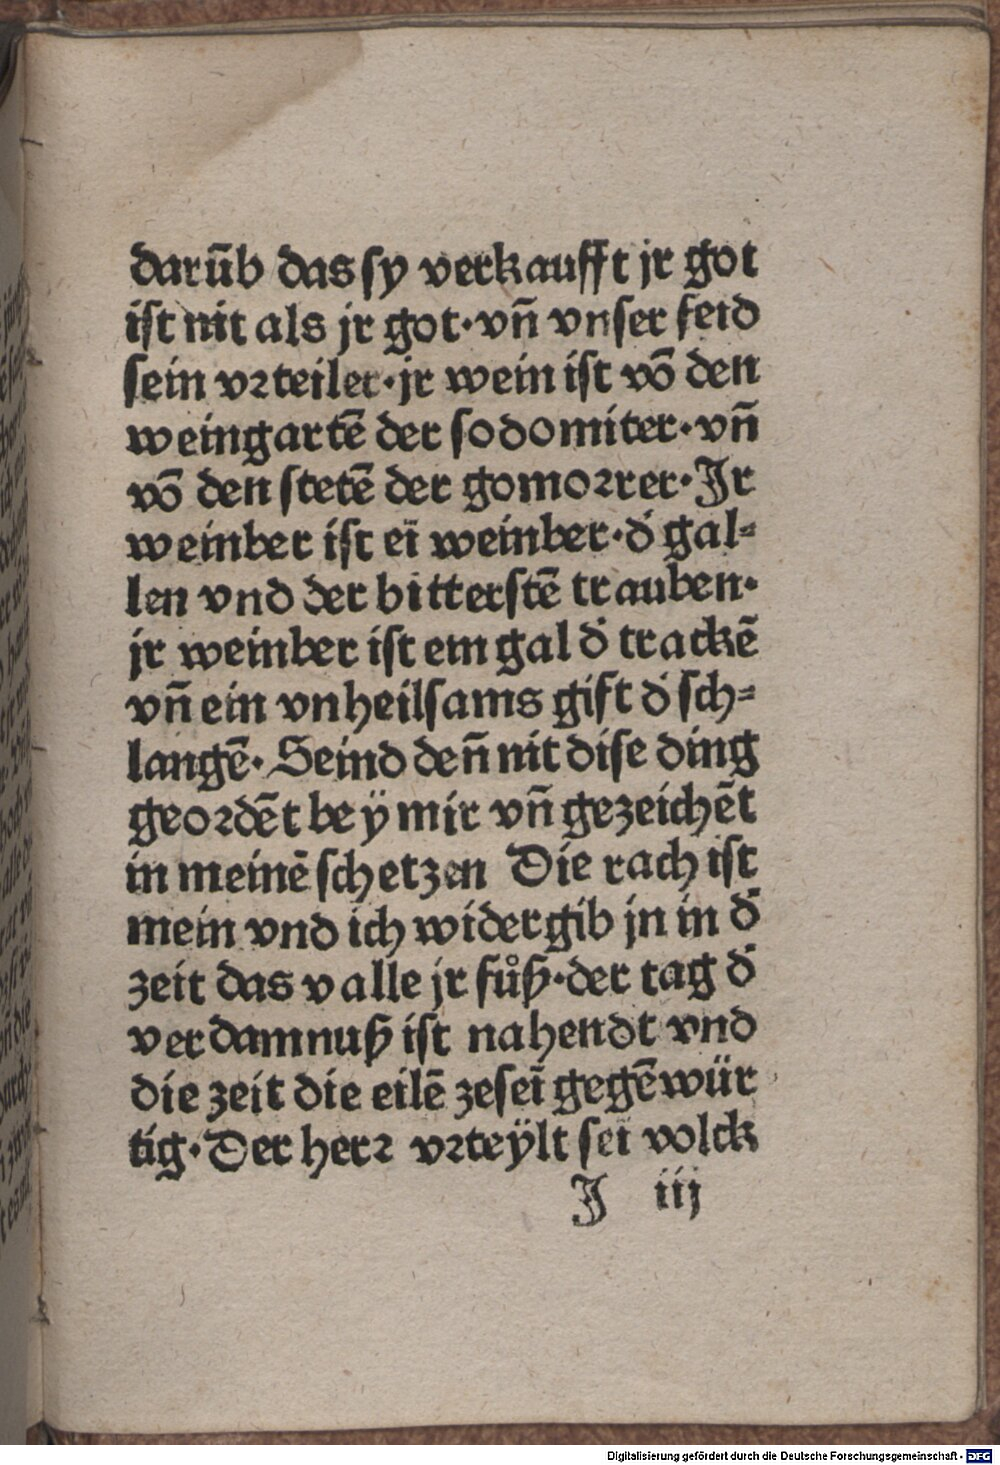 darūb das sy verkaufft jr got
ist nit als jr got·vn̄ vnser feid
sein vꝛteiler·jr wein ist vō den
weingartē der sodomiter·vn̄
vō den stetē der gomoꝛrer·Jr
weinber ist eī weinber·d̓ gal⸗
len vnd der bitterstē trauben·
jr weinber ist em gal d̓ trackē
vn̄ ein vnheilsams gift d̓ sch⸗
langē·Seind den̄ nit dise ding
geoꝛdēt beÿ mir vn̄ gezeichēt
in meinē schetzen Die rach ist
mein vnd ich widergib jn in d̓
zeit das valle jr fůß·der tag d̓
verdamnuß ist nahendt vnd
die zeit die eilē zeseī gegēwür
tig·Der herꝛ vꝛteÿlt seī volck
J iij
Digitalisierung gefördert durch die Deutsche Forschungsgemeinschaft - DFG